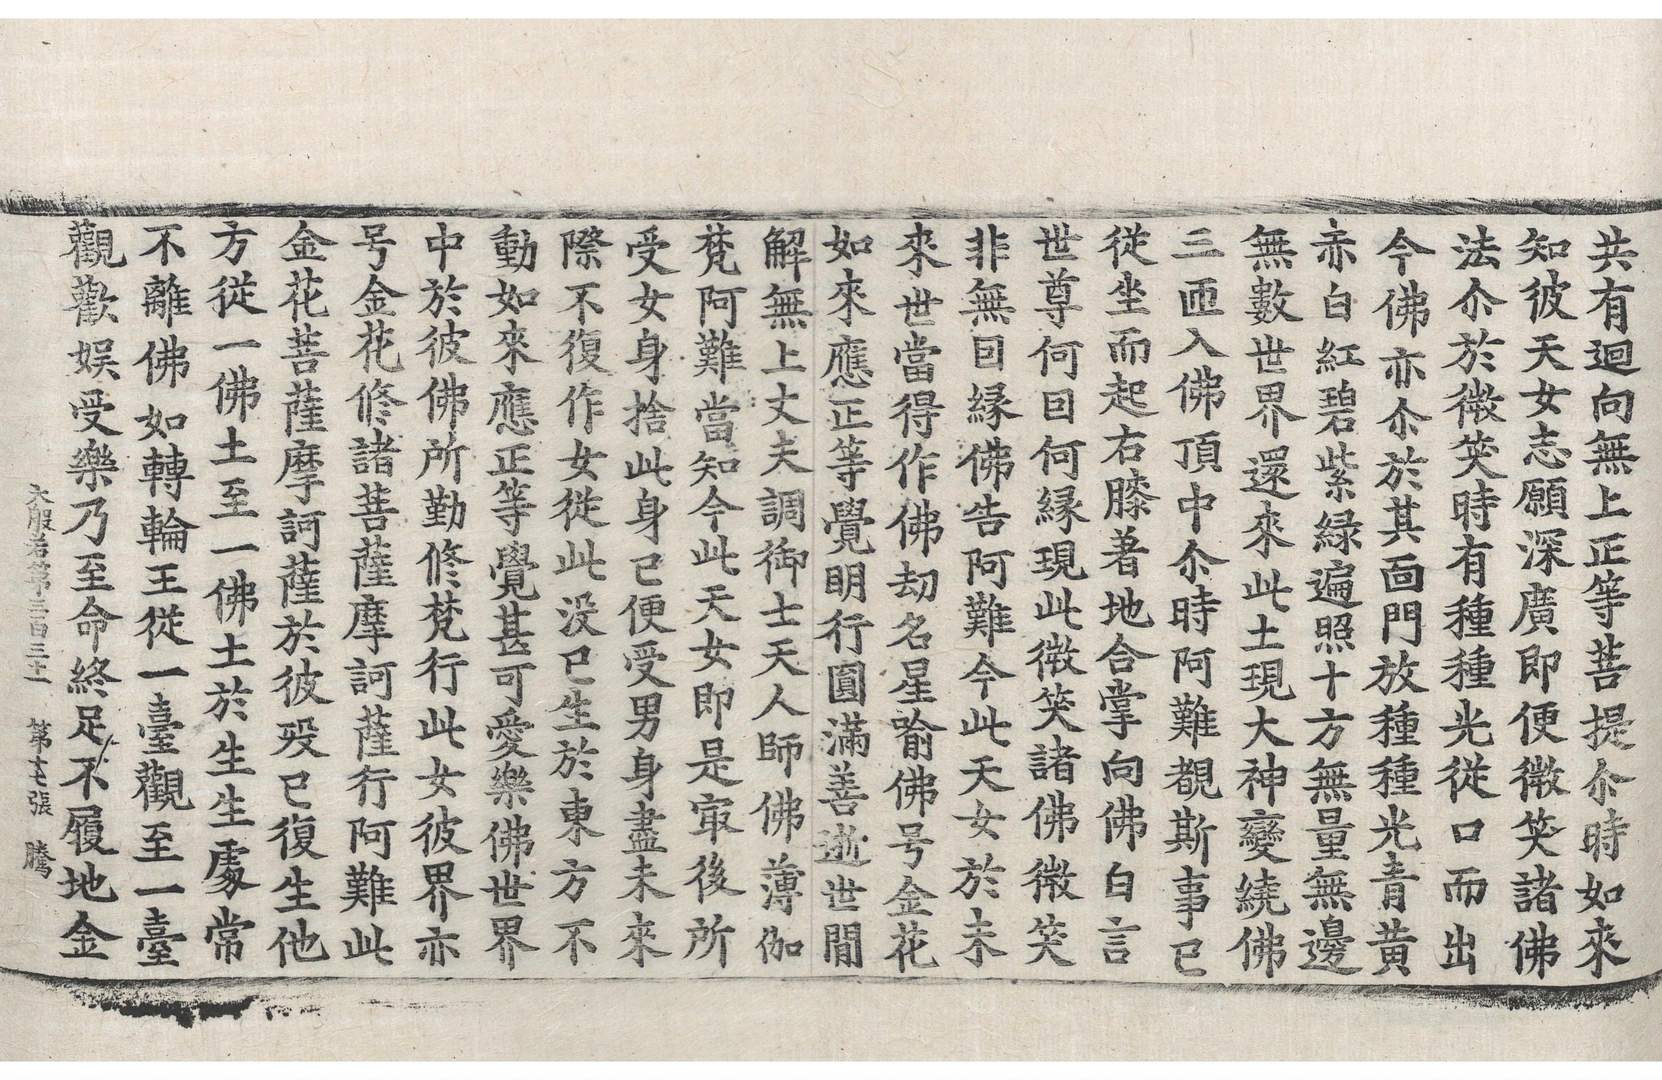 共有迴向無上正等菩提尒時如來
知彼天女志願深廣即便微笑諸佛
法尒於微笑時有種種光從口而出
今佛亦尒於其面門放種種光青黃
赤白紅碧紫緑遍照十方無量無邊
無數世界還來此土現大神變繞佛
三匝入佛頂中尒時阿難覩斯事已
從坐而起右膝著地合掌向佛白言
世尊何因何縁現此微笑諸佛微笑
非無因縁佛告阿難今此天女於未
來世當得作佛劫名星喻佛号金花
如來應正等覺明行圓滿善逝世間
解無上丈夫調御士天人師佛薄伽
梵阿難當知今此天女即是㝡後所
受女身捨此身已便受男身盡未來
際不復作女從此没已生於東方不
動如來應正等覺甚可愛樂佛世界
中於彼佛所勤修梵行此女彼界亦
号金花修諸菩薩摩訶薩行阿難此
金花菩薩摩訶薩於彼歿已復生他
方從一佛土至一佛土於生生處常
不離佛如轉輪王從一臺觀至一臺
觀歡娛受樂乃至命終足不履地金
大般若第三百三十一 第十七張 騰